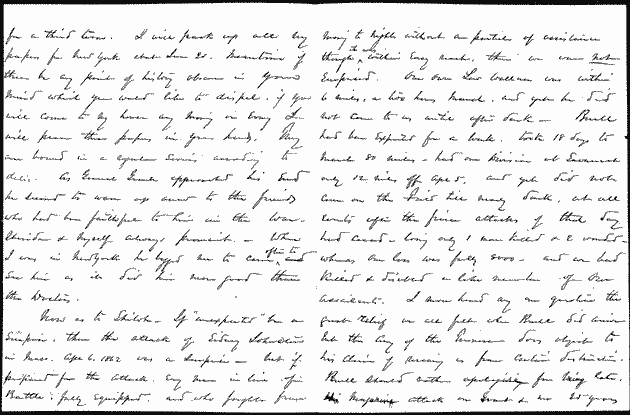 for a third term. I will pack up all my
papers for New York about June 20. Meantime if
there be any point of history obscure in your
mind which you would like to dispel, if you
will come to my house any morning or Evening I
will place these papers in your hands. They
are bound in a regular Series according to
date. As General Grant approached his End
he seemed to warm up anew to the friends
who had been faithful to him in the War.
Sheridan & myself always prominent. When
I was in New York he begged me to come often to and
See him as it did him more good than
the Doctors.
Now as to Shiloh. If "unexpected" be a
Surprise, then the attack of Sidney Johnston
in Mass. Apl 6, 1862 was a Surprise - but if
prepared for the attack. Every man in line of
Battle: fully Equipped, and who fought from
morning to night without a particle of assistance
though the was within Easy reach, then we were not
Surprised. Our own Lew Wallace was within
6 miles, a two hours March, and yet he did
not come to us until after dark - Buell
had been Expected for a week. took 18 days to
March 90 miles - had one Division at Savannah
only 12 miles off Apl 5, and yet did not
come on the Field till nearly dark, at all
Events after the fierce attacks of that day
had ceased - losing only 1 man killed & 2 wounded -
whereas our loss was fully 8000 - and we had
Killed & disabled a like number of our
assailants. I never heard any one question the
great relief we all felt when Buell did arrive
but the Army of the Tennessee does object to
his claim of rescuing us from certain destruction.
Buell should rather apologise for being late.
His attack on Grant & me 20 years